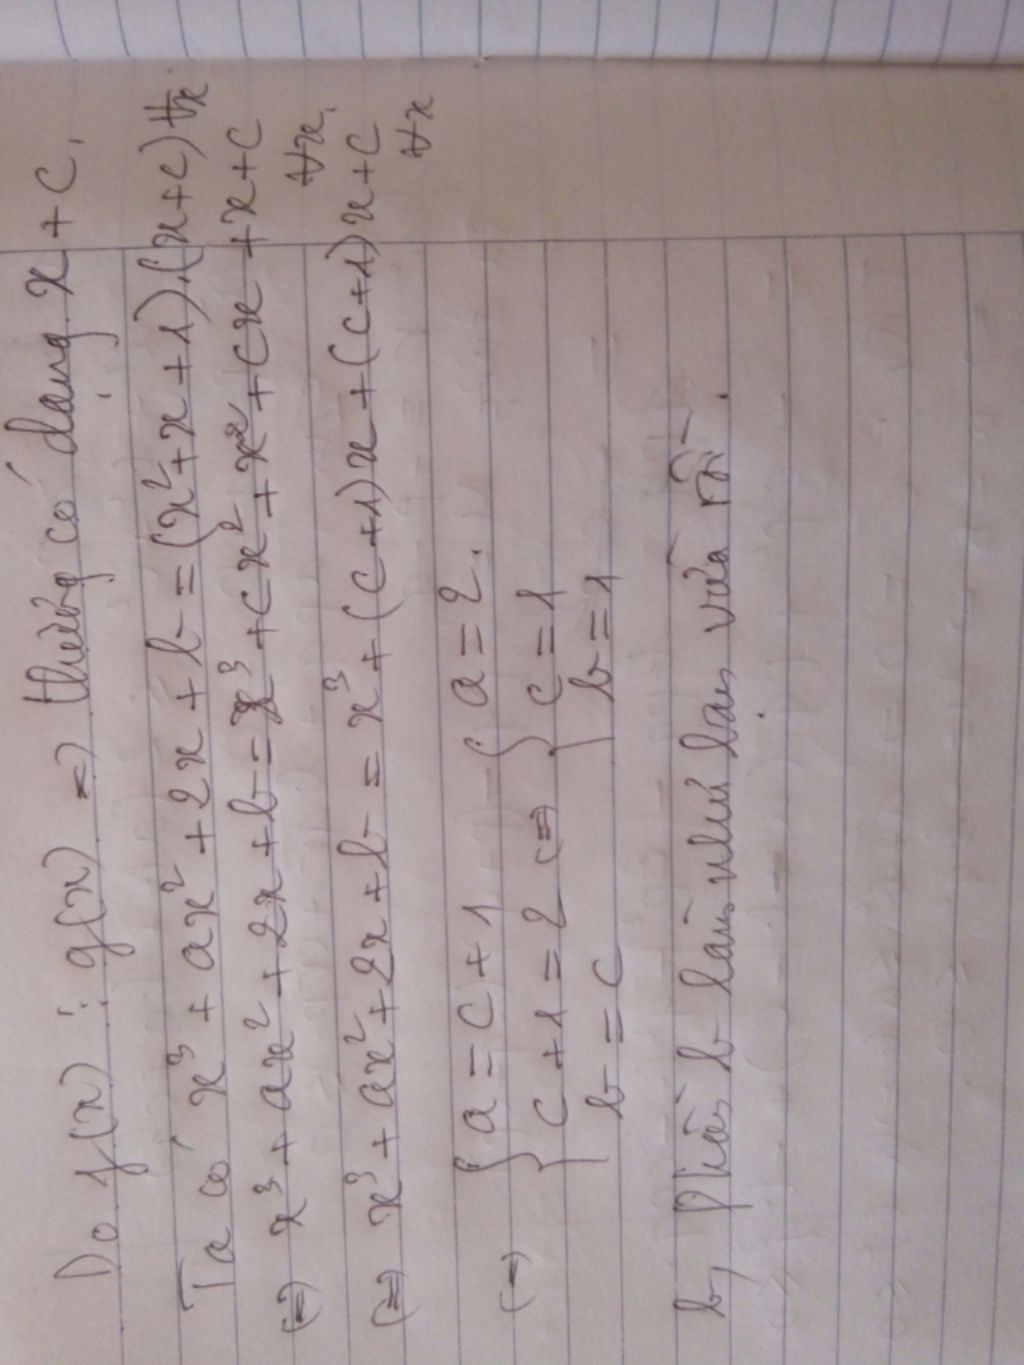 Do f(x) ⋮ g(x) => thương có dạng x + c.
Ta có x³ + ax² + 2x + b = (x² + x + 1).(x + c) ∀x
<=> x³ + ax² + 2x + b = x³ + cx² + x² + cx + x + c ∀x.
<=> x³ + ax² + 2x + b = x³ + (c+1)x + (c+1)x + c ∀x
<=> { a = c + 1 { a = 2.
c + 1 = 2 <=> c = 1
b = c b = 1
b, Phần b làm như lần vừa rồi.